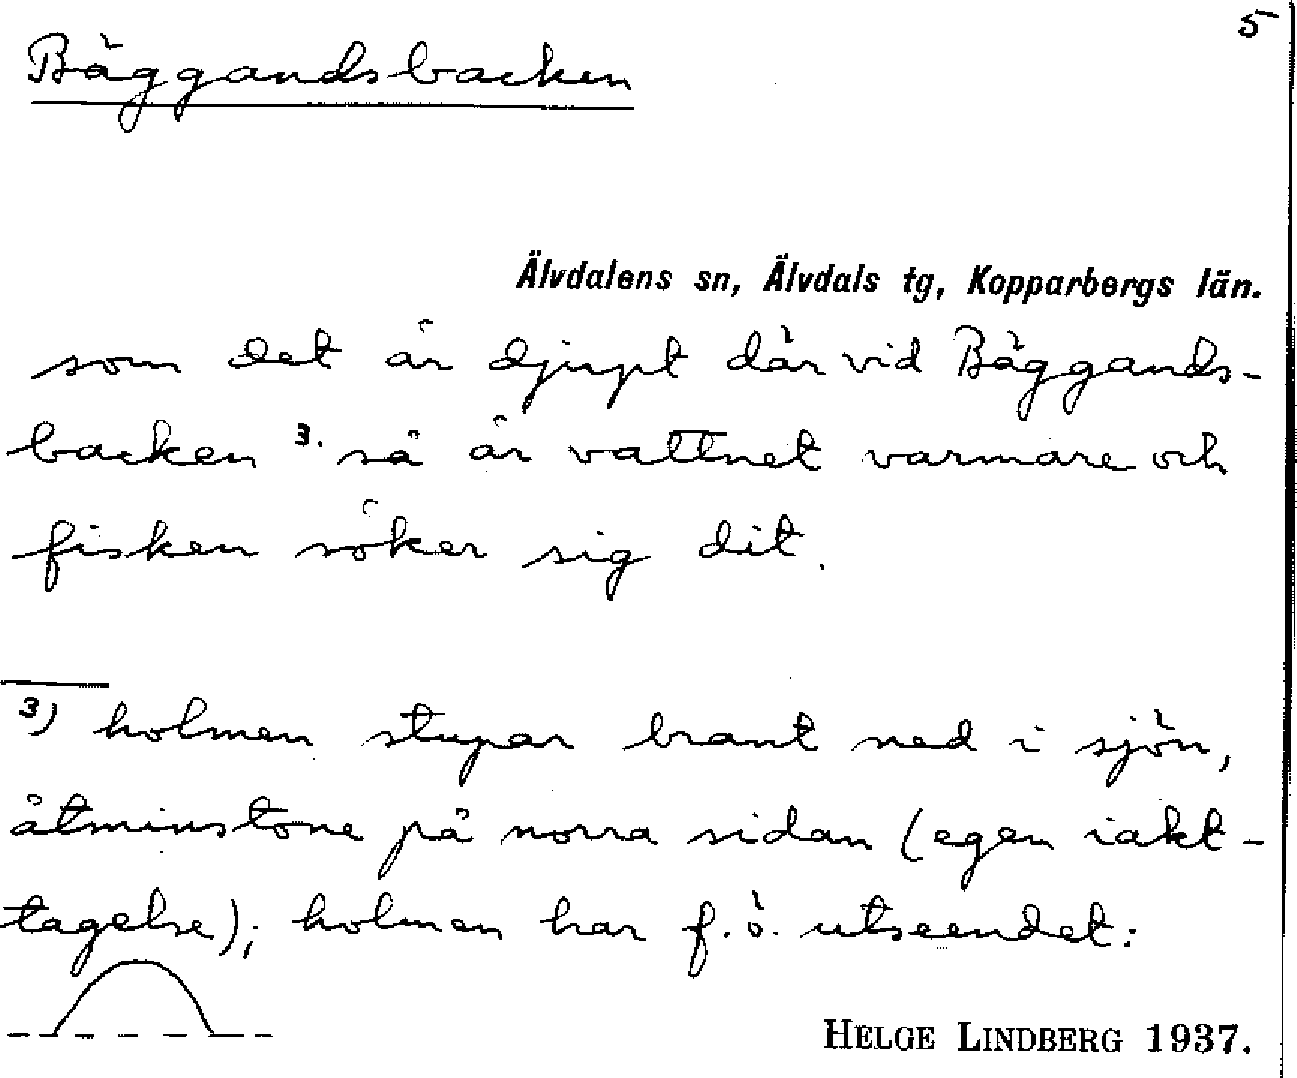 5
Bäggandsbacken
Älvdalens sn, Älvdals tg, Kopparbergs län.
som det är djupt där vid Bäggands-
backen 3. så är vattnet varmare och
fisken söker sig dit.
3) holmen stupar brant ned i sjön,
åtminstone på norra sidan (egen iakt-
tagelse); holmen har f.ö. utseendet:
HELGE LINDBERG 1937.